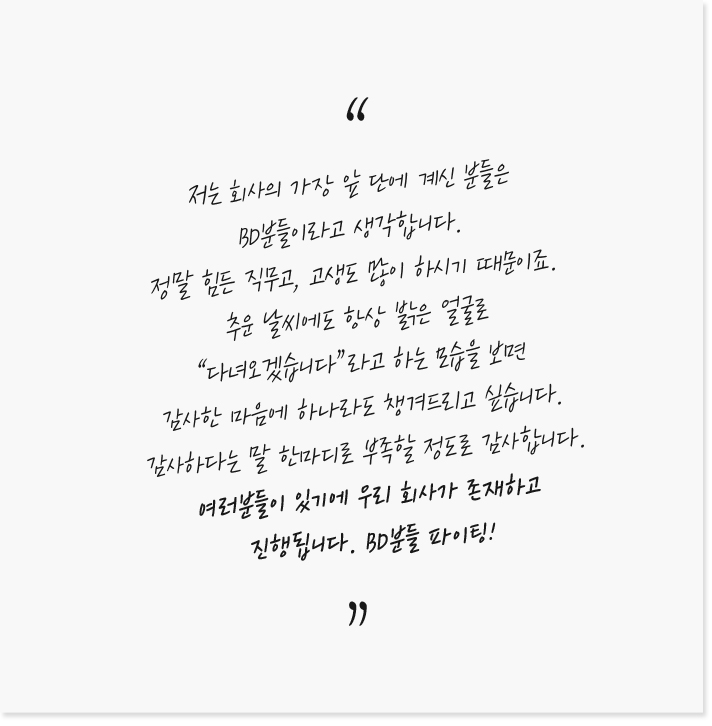 “
저는 회사의 가장 앞 단에 계신 분들은
BD분들이라고 생각합니다.
정말 힘든 직무고, 고생도 많이 하시기 때문이죠.
추운 날씨에도 항상 밝은 얼굴로
“다녀오겠습니다”라고 하는 모습을 보면
감사한 마음에 하나라도 챙겨드리고 싶습니다.
감사하다는 말 한마디로 부족할 정도로 감사합니다.
여러분들이 있기에 우리 회사가 존재하고
진행됩니다. BD분들 파이팅!
”